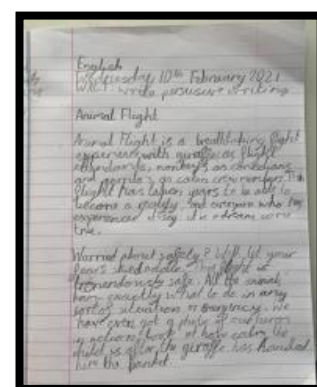 English
Wednesday 10th February 2021
WALT: write persuasive writing
Animal Flight
Animal Flight is a breathtaking flight
experience with giraffes as flight
attendants, monkeys as comedians
and gorilla's as cabin crew members. This
flight has taken years to be able to
become a reality, and everyone who has
experienced it say it's a dream come
true.
Worried about safety? Well, let your
fears skedaddle. This flight is
tremendously safe. All the animals
know exactly what to do in any
sort of situation or emergency. We
have even got a photo of our
in action: look at how calm the
child is after the giraffe has handed
him the blanket.